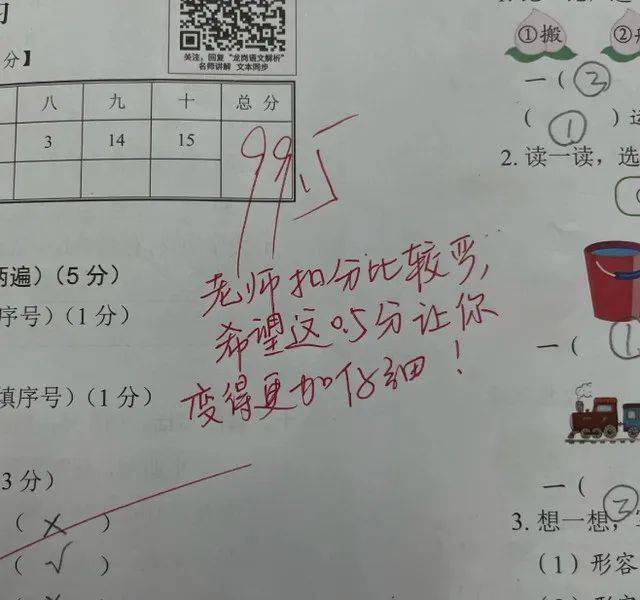 习
分】
关注，回复“龙岗语文解析”
名师讲解 文本同步
八 九 十 总分
3 14 15
99.5
老师扣分比较严，
希望这0.5分让你
变得更加仔细！
两遍）（5分）
序号）（1分）
填序号）（1分）
3分）
（ × ）
（ √ ）
①搬 ②
一（ ③
（ ① ）
2. 读一读，选
一（ ①
一（ ③
3. 想一想，
（1）形容
（2）形容